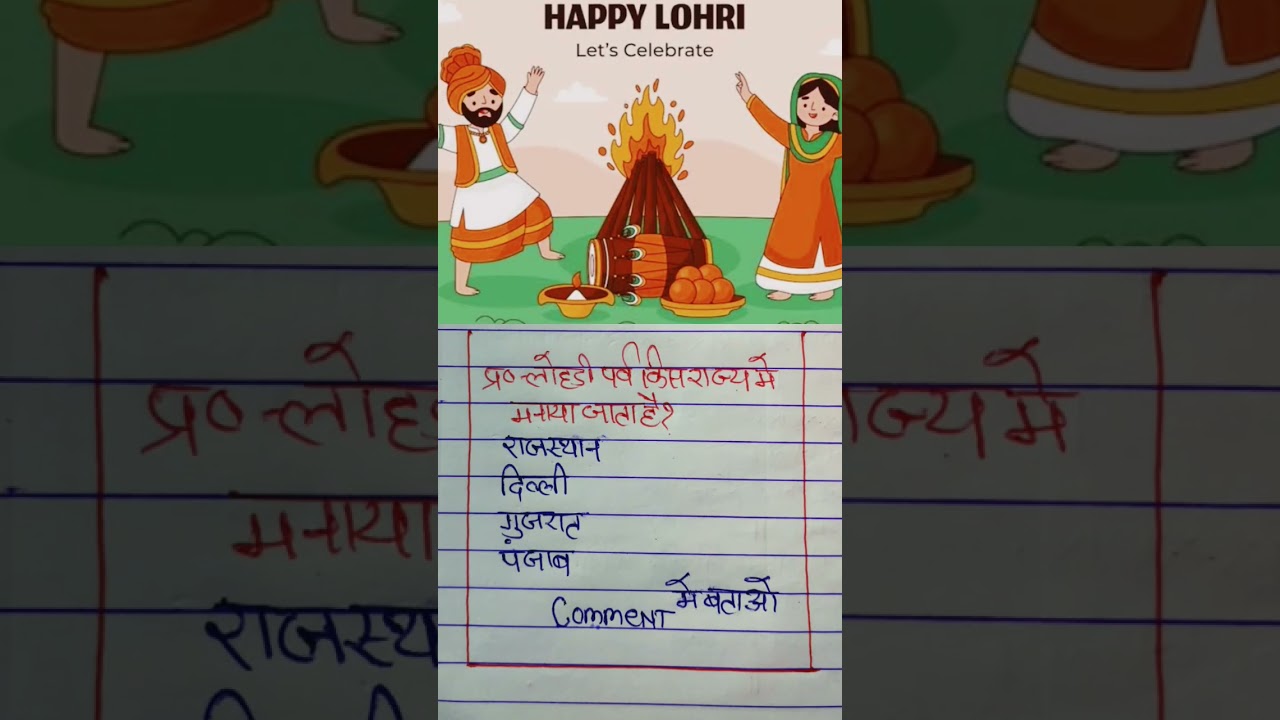 HAPPY LOHRI
Let's Celebrate
प्र०-लोहडी पर्व किस राज्य में
मनाया जाता है?
राजस्थान
दिल्ली
गुजरात
पंजाब
Comment में बताओ